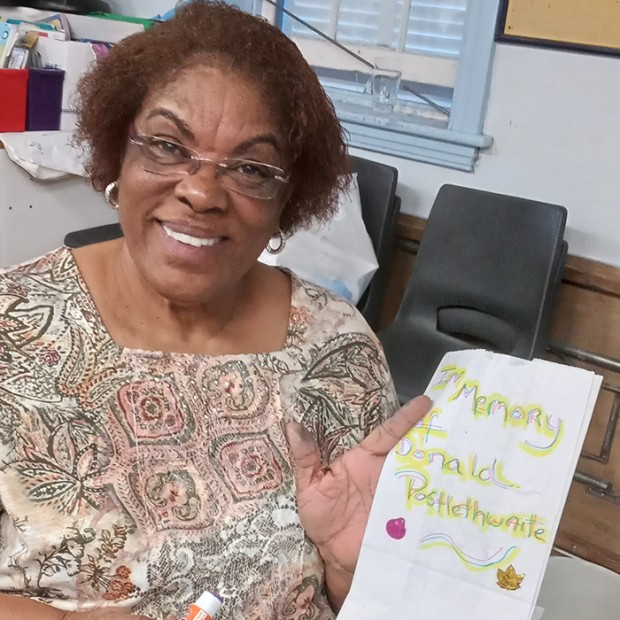 In Memory
of
Donald
Postlethwaite